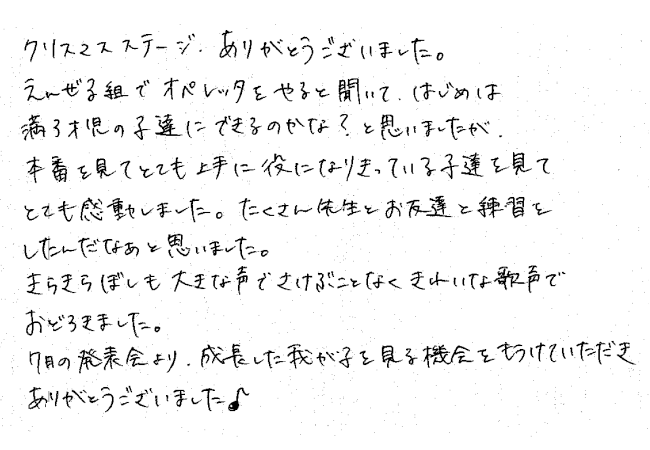 クリスマスステージ、ありがとうございました。
えんぜる組でオペレッタをやると聞いて、はじめは
満3才児の子達にできるのかな?と思いましたが、
本番を見てとても上手に役になりきっている子達を見て
とても感動しました。たくさん先生とお友達と練習を
したんだなぁと思いました。
きらきらぼしも大きな声でさけぶことなくきれいな歌声で
おどろきました。
7月の発表会より、成長した我が子を見る機会をもうけていただき
ありがとうございました♪